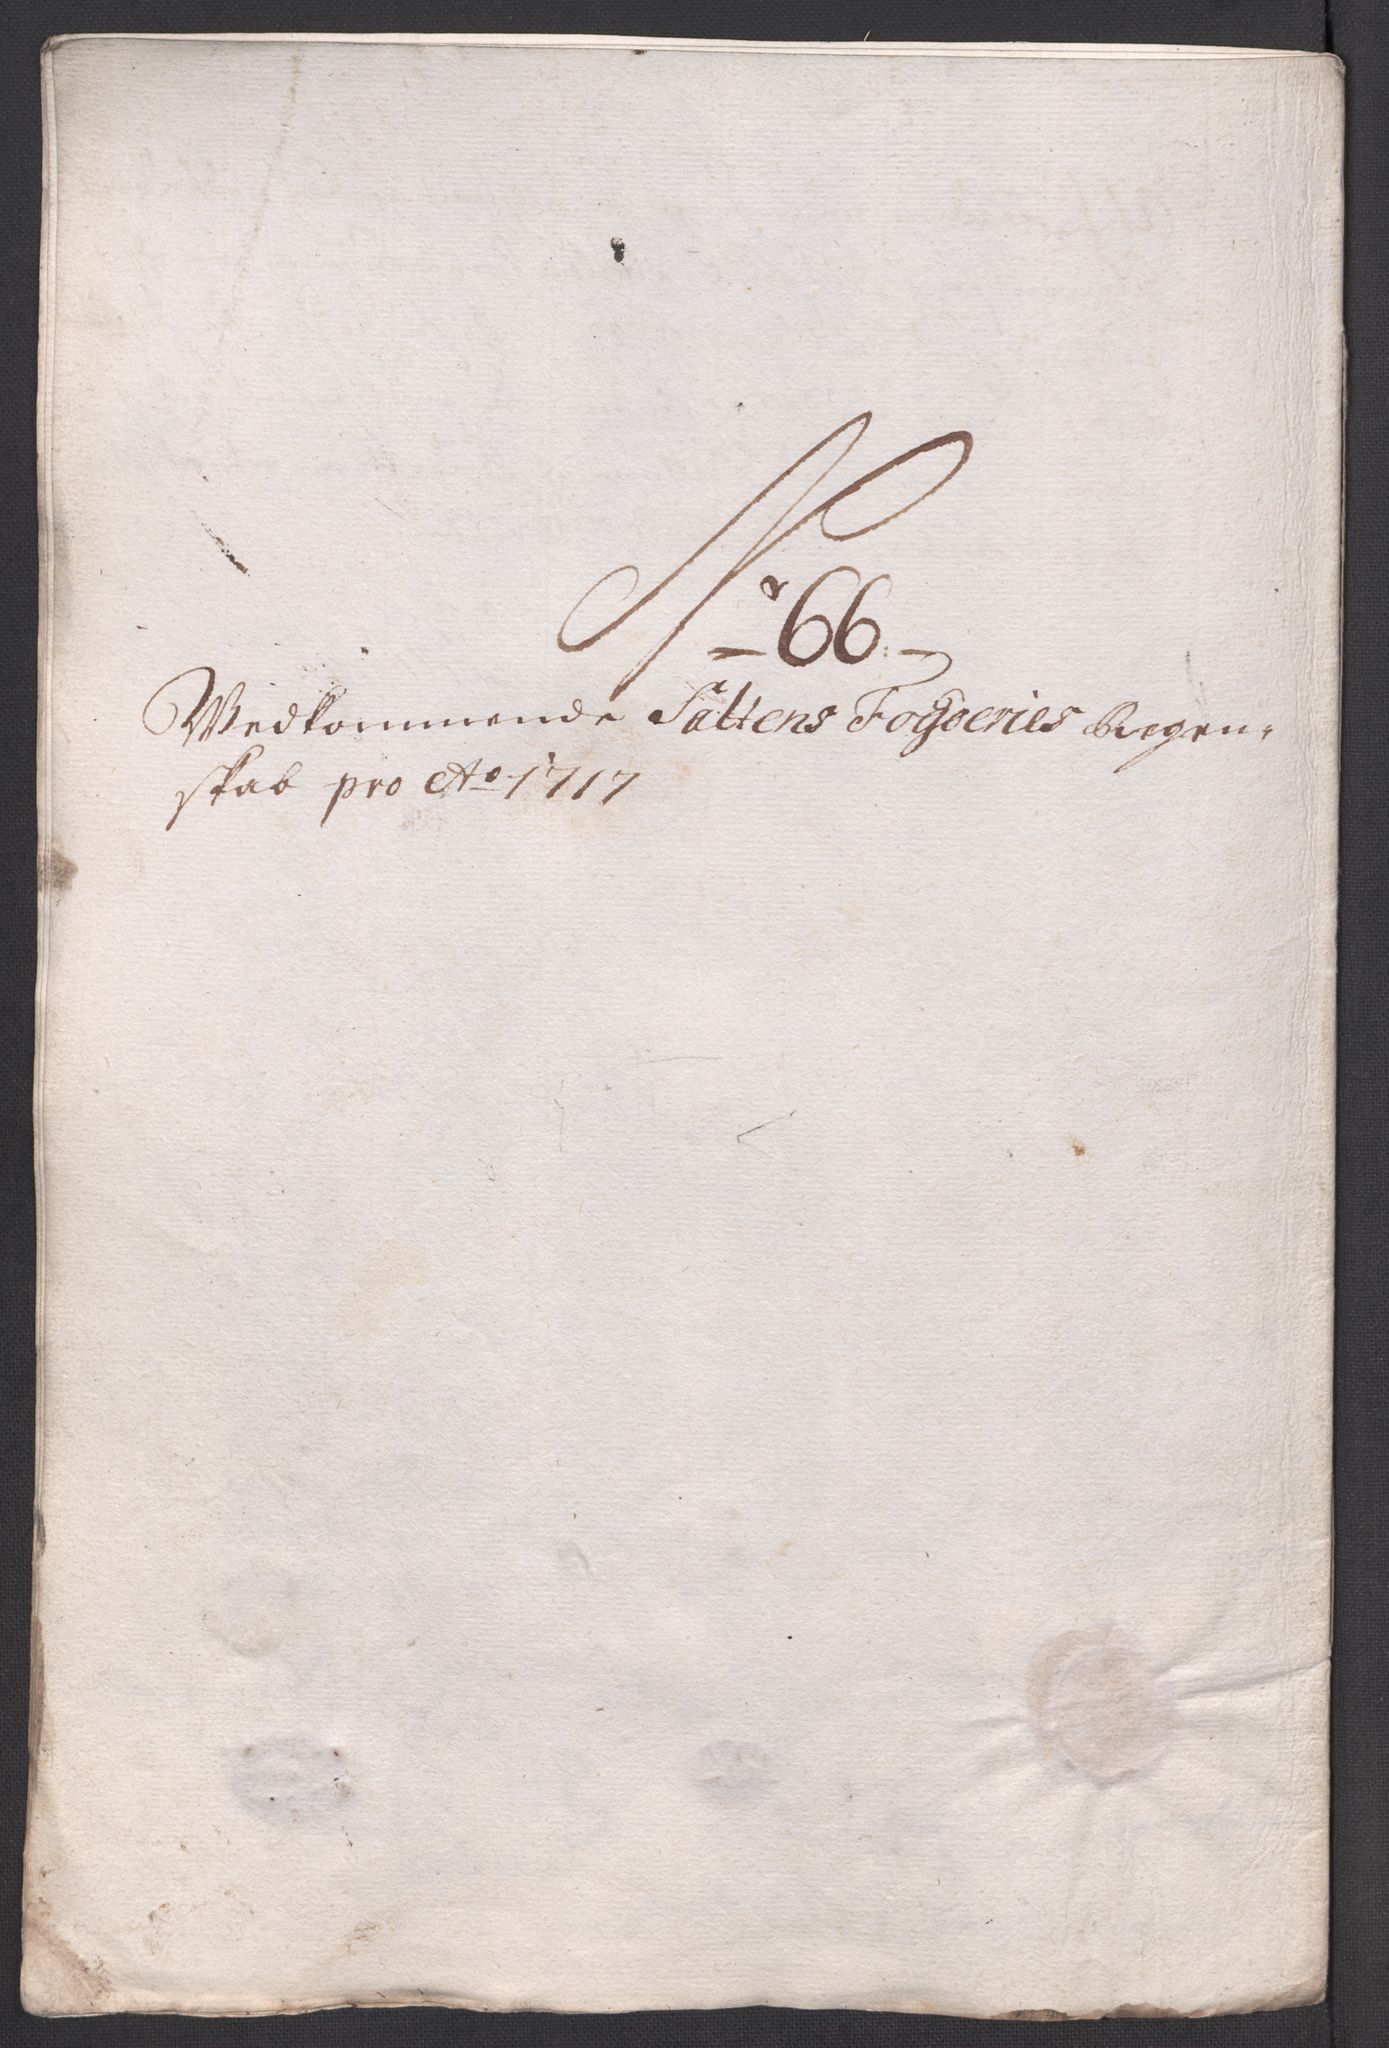 Nr 66.
Wedkommende Saltens Fogderies Regen-
skab pro Ao 1717